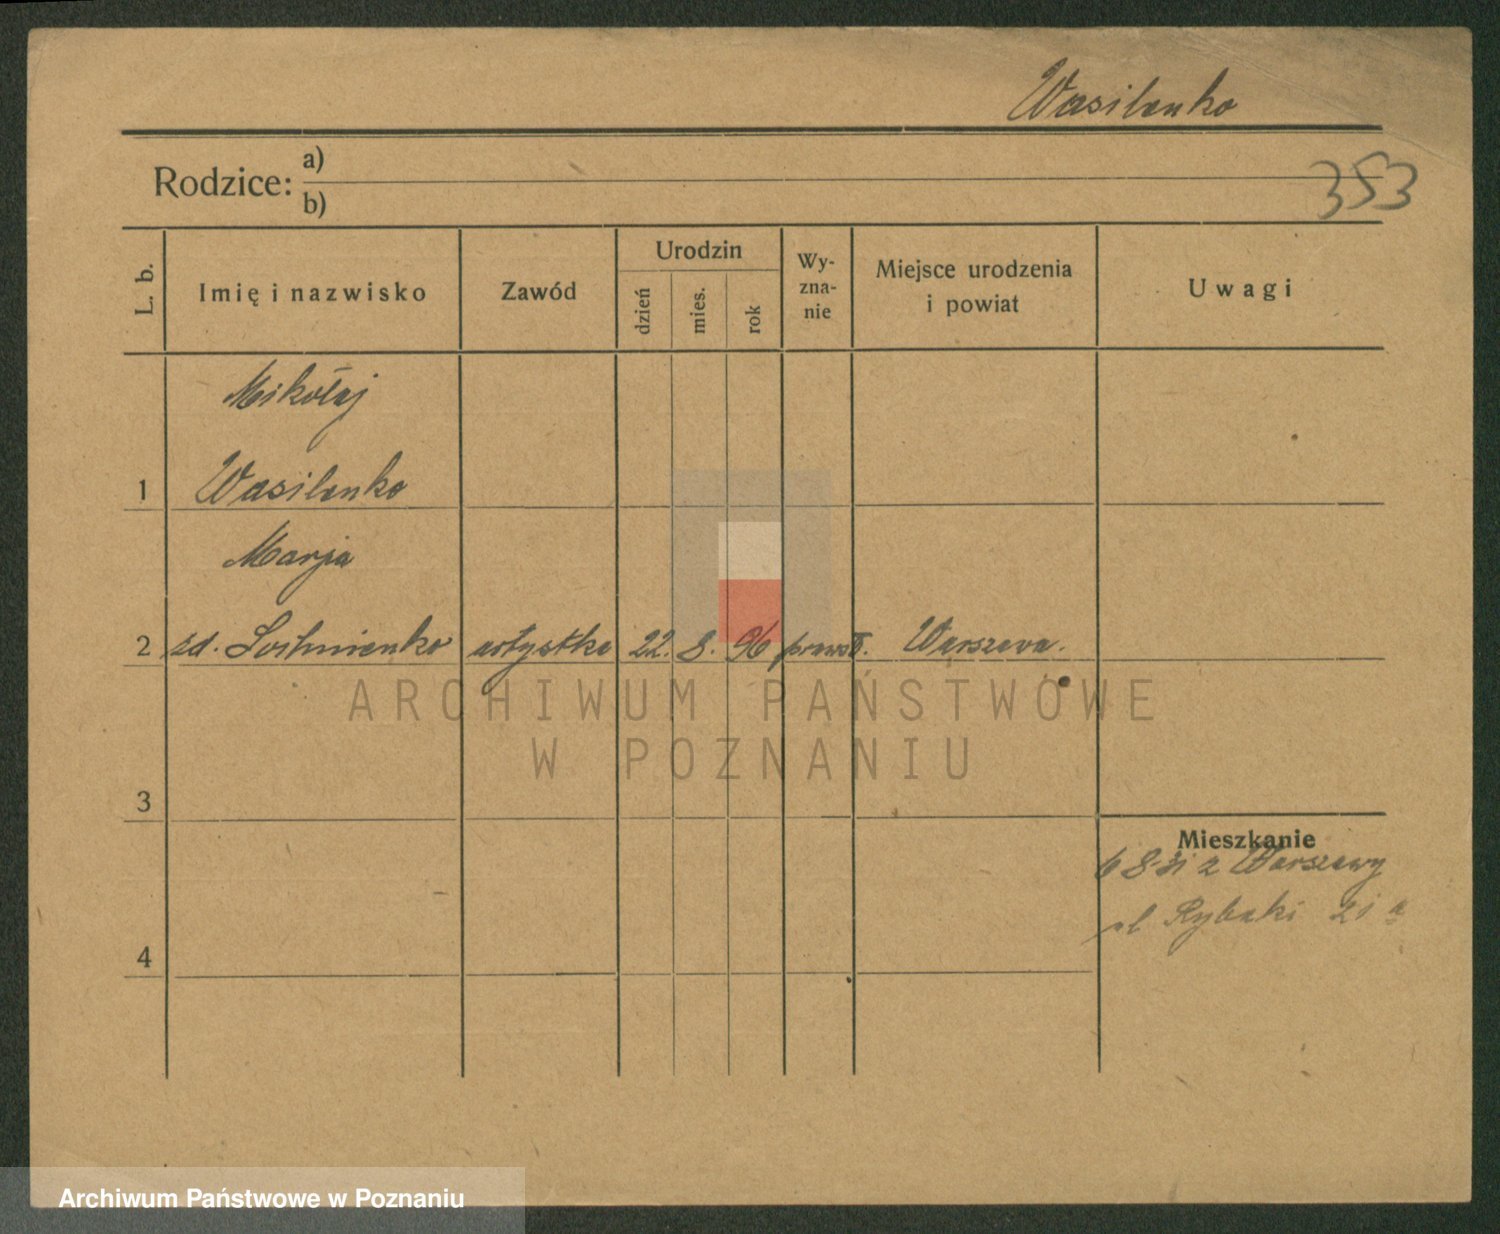 Wasilenko
Rodzice: a)
b)
353
L. b.
Imię i nazwisko
Zawód
Urodzin
dzień
mies.
rok
Wy-
zna-
nie
Miejsce urodzenia
i powiat
Uwagi
Mikołaj
1 Wasilenko
Marja
2 artystka 22. 8. 96 Warszawa.
3
4
Mieszkanie
z Warszawy
Rybaki 21 a
ARCHIWUM PAŃSTWOWE
W POZNANIU
Archiwum Państwowe w Poznaniu